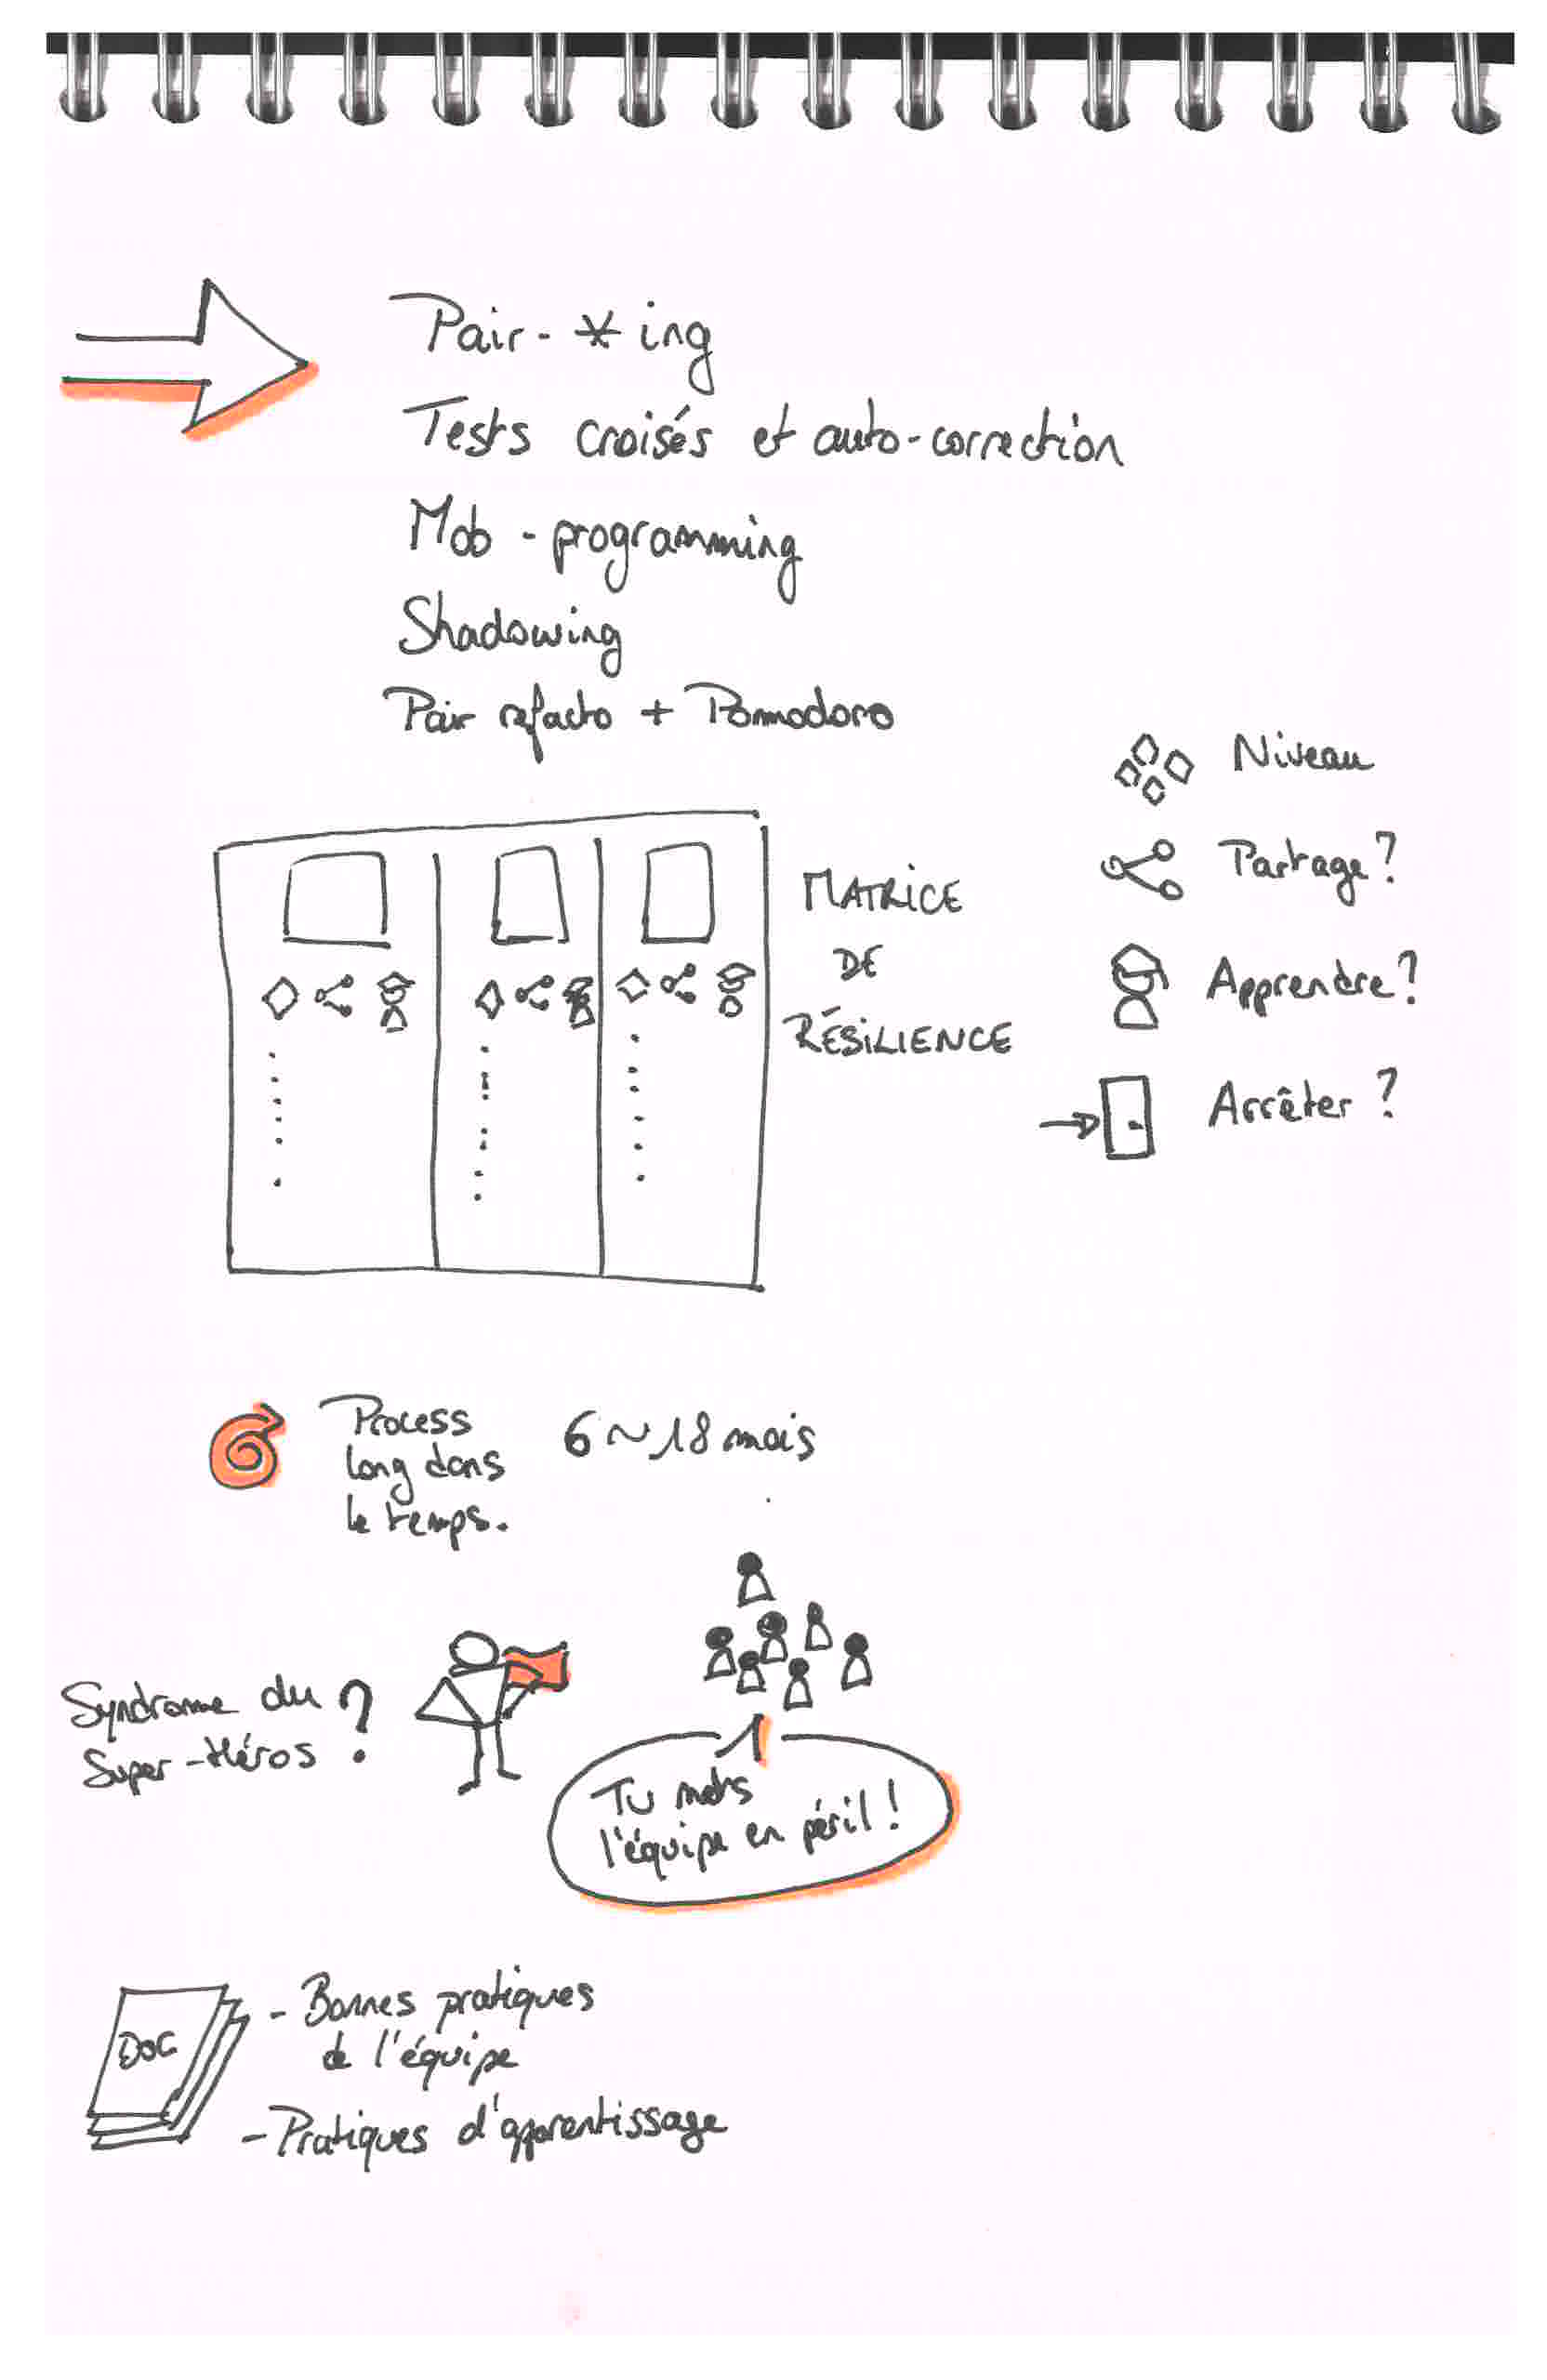 Pair-*ing
Tests croisés et auto-correction
Mob-programming
Shadowing
Pair refacto + Pomodoro
Niveau
Partage ?
Apprendre ?
Arrêter ?
MATRICE
DE
RÉSILIENCE
Process
long dans
le temps.
6 ~ 18 mois
Syndrome du
Super-Héros ?
Tu mets
l'équipe en péril !
DOC
- Bonnes pratiques
de l'équipe
- Pratiques d'apprentissage